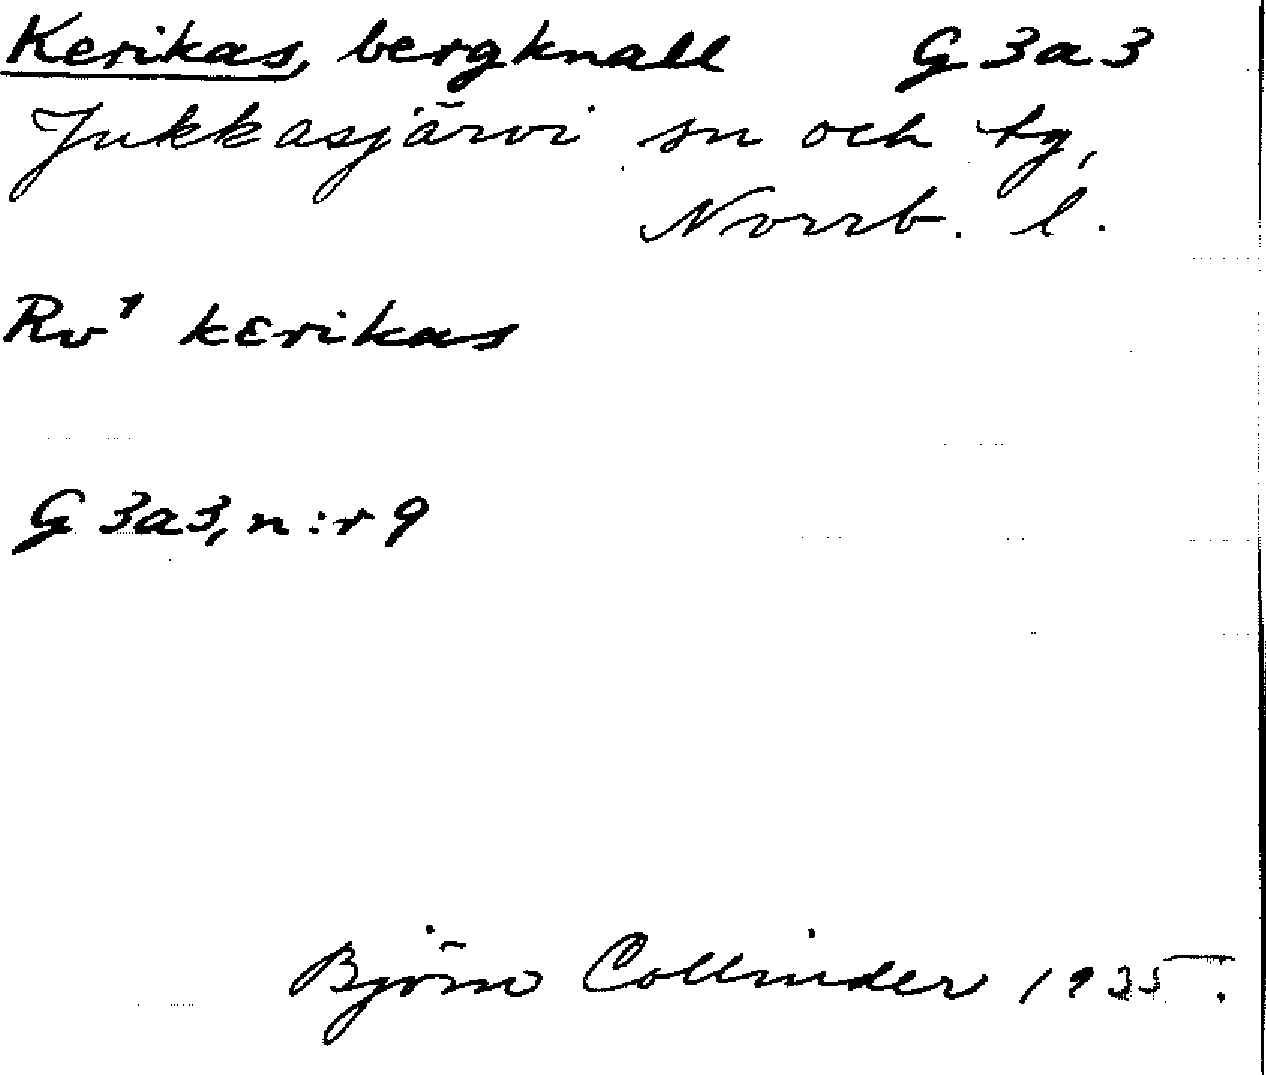 Kerikas, bergknall G3a3
Jukkasjärvi sn och tg,
Norrb. l.
Rv¹ kεrikas
G3a3, n:r 9
Björn Collinder 1935.